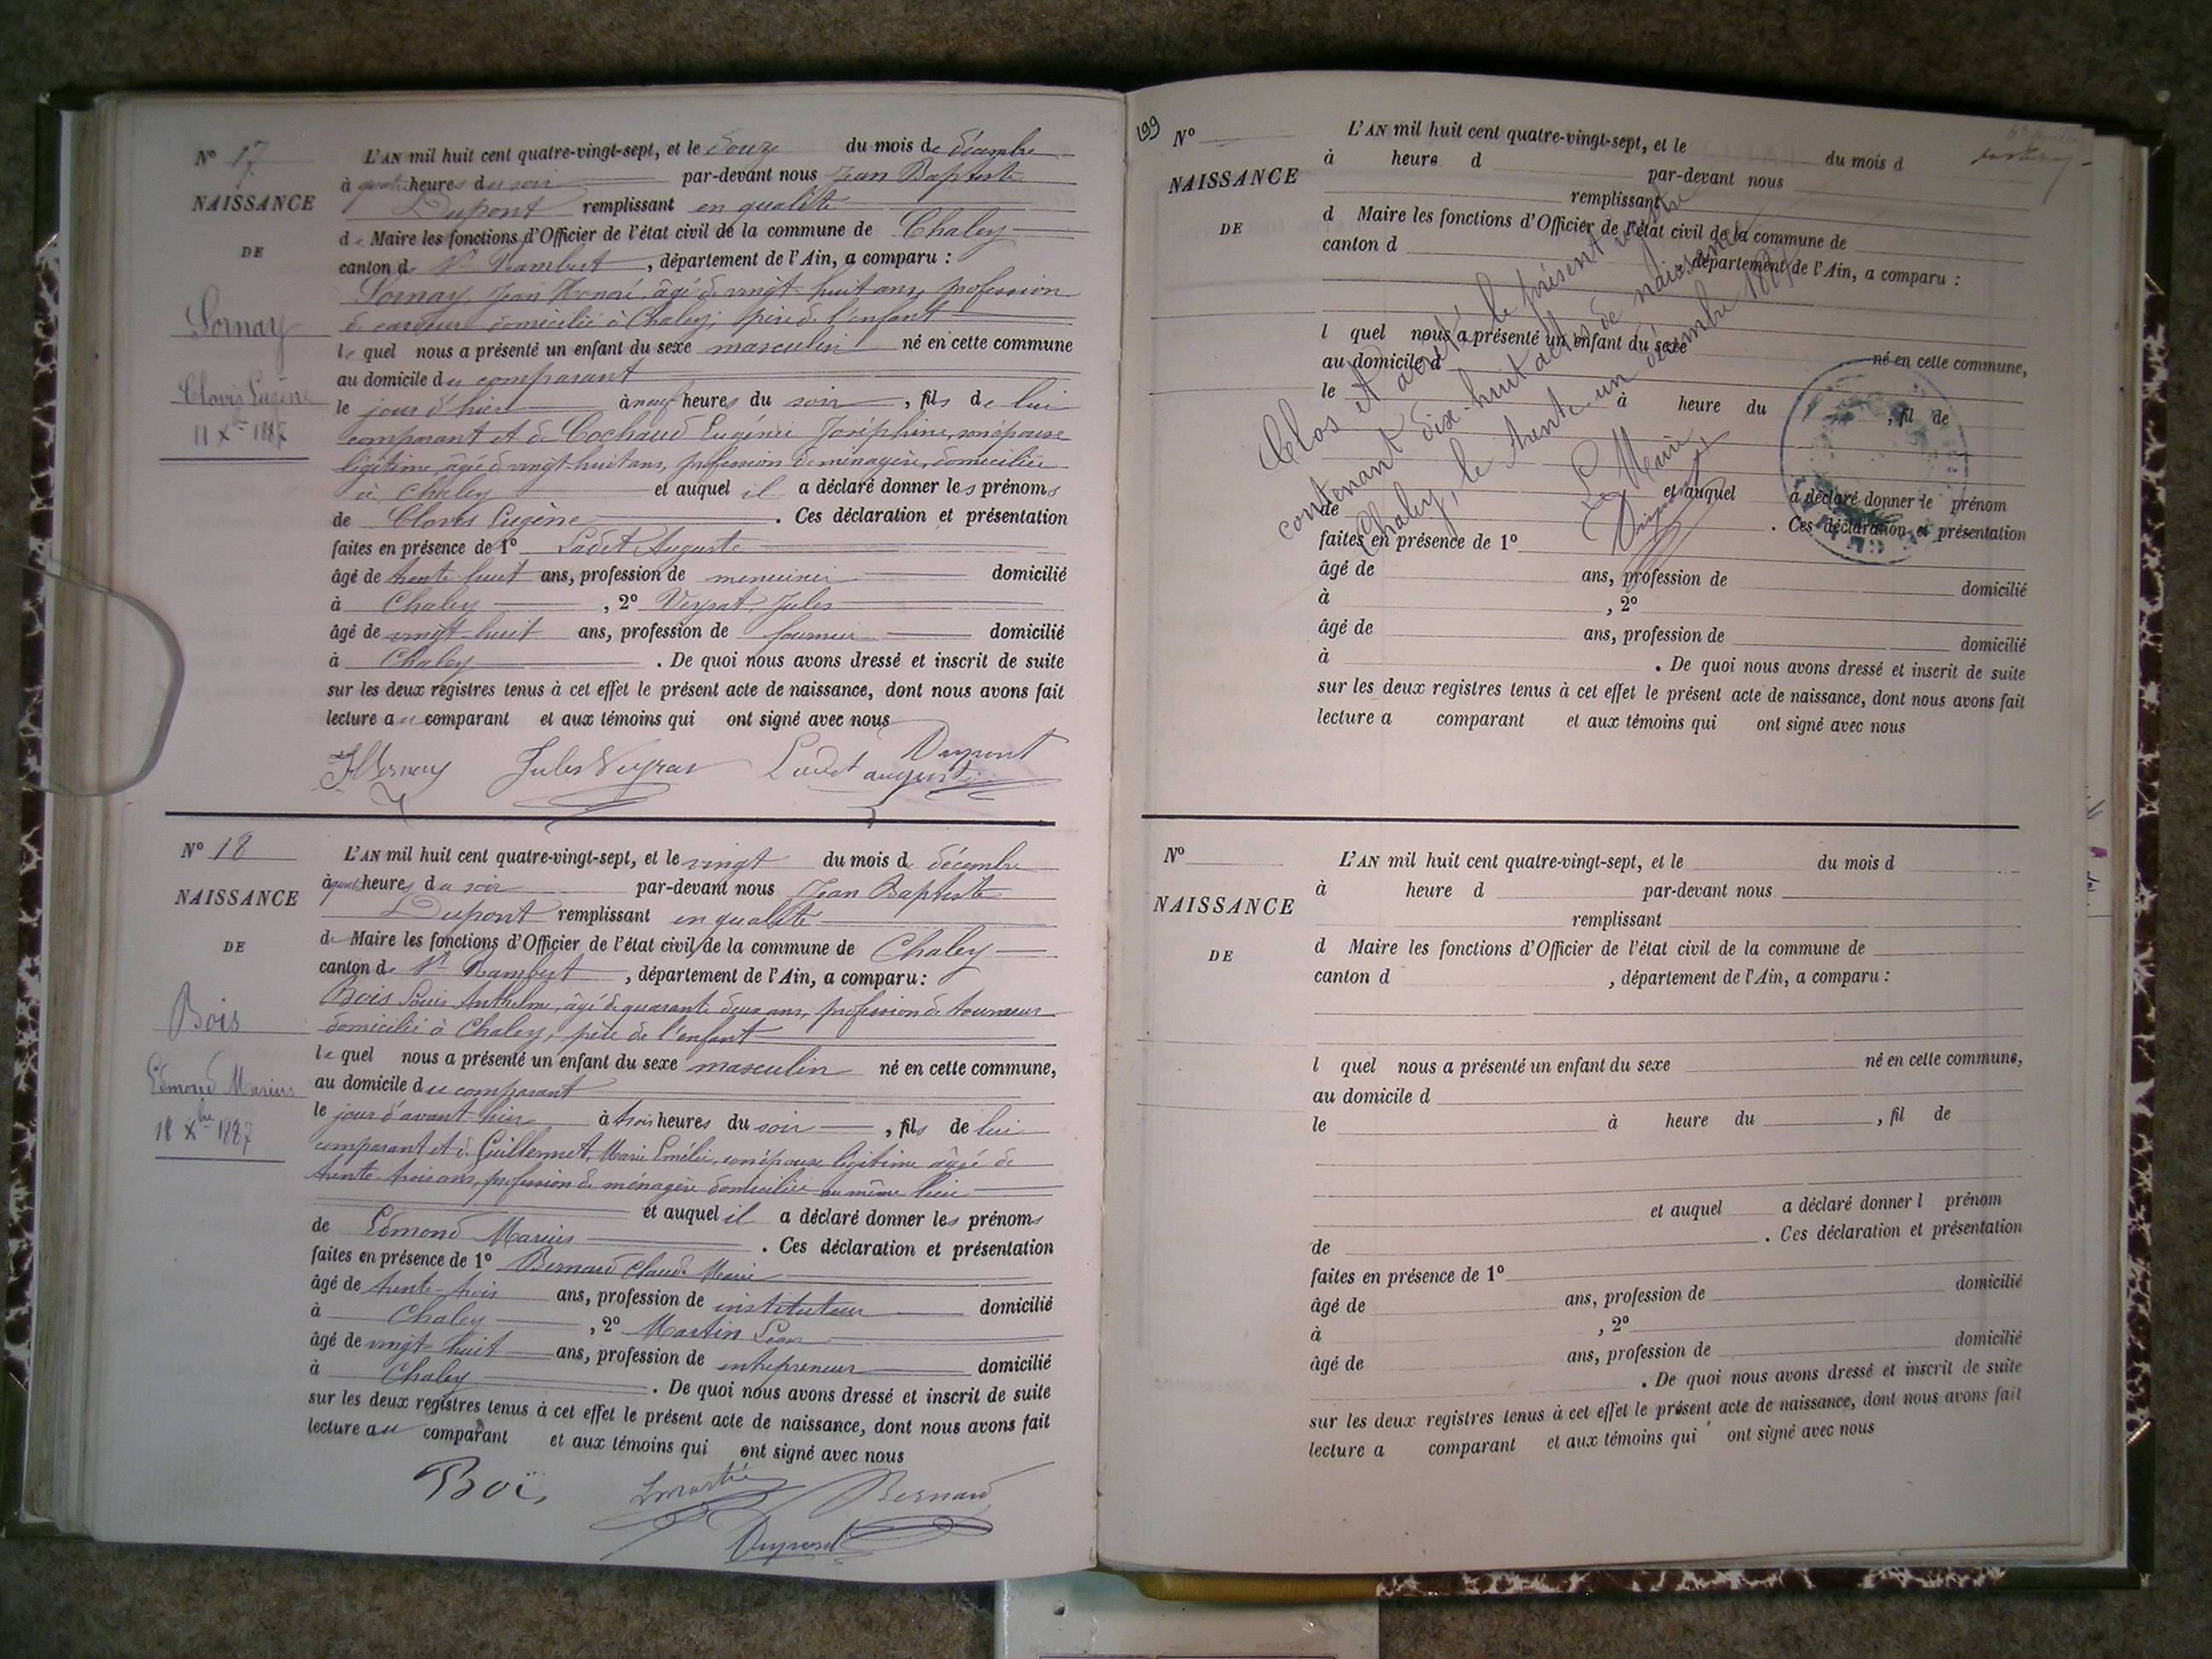 N° 17
NAISSANCE
DE
Sornay
Clovis Eugène
11 Xbre 1887
L'AN mil huit cent quatre-vingt-sept, et le douze du mois de décembre
à quatre heures du soir par-devant nous Jean Baptiste
Dupont remplissant en qualité
de Maire les fonctions d'Officier de l'état civil de la commune de Chaley
canton de St Rambert, département de l'Ain, a comparu :
Sornay, Jean Honoré, âgé de vingt-huit ans, profession
de cardeur domicilié à Chaley, père de l'enfant
le quel nous a présenté un enfant du sexe masculin né en cette commune
au domicile du comparant
le jour d'hier à neuf heures du soir, fils de lui
comparant et de Cochaud Eugénie Joséphine, son épouse
légitime, âgée de vingt-huit ans, profession de ménagère, domiciliée
à Chaley et auquel il a déclaré donner les prénoms
de Clovis Eugène. Ces déclaration et présentation
faites en présence de 1° Ladet Auguste
âgé de trente-huit ans, profession de menuisier domicilié
à Chaley, 2° Veyrat, Jules
âgé de vingt-huit ans, profession de domicilié
à Chaley. De quoi nous avons dressé et inscrit de suite
sur les deux registres tenus à cet effet le présent acte de naissance, dont nous avons fait
lecture au comparant et aux témoins qui ont signé avec nous
Dupont
Sornay Jules Veyrat Ladet auguste
N° 18
NAISSANCE
DE
Bois
Edmond Marius
18 Xbre 1887
L'AN mil huit cent quatre-vingt-sept, et le vingt du mois de décembre
à quatre heures du soir par-devant nous Jean Baptiste
Dupont remplissant en qualité
de Maire les fonctions d'Officier de l'état civil de la commune de Chaley
canton de St Rambert, département de l'Ain, a comparu :
Bois Louis Anthelme, âgé de quarante deux ans, profession de tourneur
domicilié à Chaley, père de l'enfant
le quel nous a présenté un enfant du sexe masculin né en cette commune,
au domicile du comparant
le jour d'avant-hier à trois heures du soir, fils de lui
comparant et de Guillermet, Marie Emélie, son épouse légitime âgée de
trente-trois ans, profession de ménagère domiciliée au même lieu
et auquel il a déclaré donner les prénoms
de Edmond Marius. Ces déclaration et présentation
faites en présence de 1° Bernard Claude Marie
âgé de trente-trois ans, profession de instituteur domicilié
à Chaley, 2° Martin Léon
âgé de vingt-huit ans, profession de entrepreneur domicilié
à Chaley. De quoi nous avons dressé et inscrit de suite
sur les deux registres tenus à cet effet le présent acte de naissance, dont nous avons fait
lecture au comparant et aux témoins qui ont signé avec nous
Boïs LMartin Bernard
Dupont
199
N°
NAISSANCE
DE
L'AN mil huit cent quatre-vingt-sept, et le du mois d
à heure d par-devant nous
remplissant
d Maire les fonctions d'Officier de l'état civil de la commune de
canton d , département de l'Ain, a comparu :
l quel nous a présenté un enfant du sexe né en cette commune,
au domicile d
le à heure du , fil de
et auquel a déclaré donner le prénom
de . Ces déclaration et présentation
faites en présence de 1°
âgé de ans, profession de domicilié
à , 2°
âgé de ans, profession de domicilié
à . De quoi nous avons dressé et inscrit de suite
sur les deux registres tenus à cet effet le présent acte de naissance, dont nous avons fait
lecture a comparant et aux témoins qui ont signé avec nous
Clos et arrêté le présent registre
contenant dix-huit actes de naissance
Chaley, le trente-un décembre 1887
Le Maire
Dupont
N°
NAISSANCE
DE
L'AN mil huit cent quatre-vingt-sept, et le du mois d
à heure d par-devant nous
remplissant
d Maire les fonctions d'Officier de l'état civil de la commune de
canton d , département de l'Ain, a comparu :
l quel nous a présenté un enfant du sexe né en cette commune,
au domicile d
le à heure du , fil de
et auquel a déclaré donner l prénom
de . Ces déclaration et présentation
faites en présence de 1°
âgé de ans, profession de domicilié
à , 2°
âgé de ans, profession de domicilié
. De quoi nous avons dressé et inscrit de suite
sur les deux registres tenus à cet effet le présent acte de naissance, dont nous avons fait
lecture a comparant et aux témoins qui ont signé avec nous